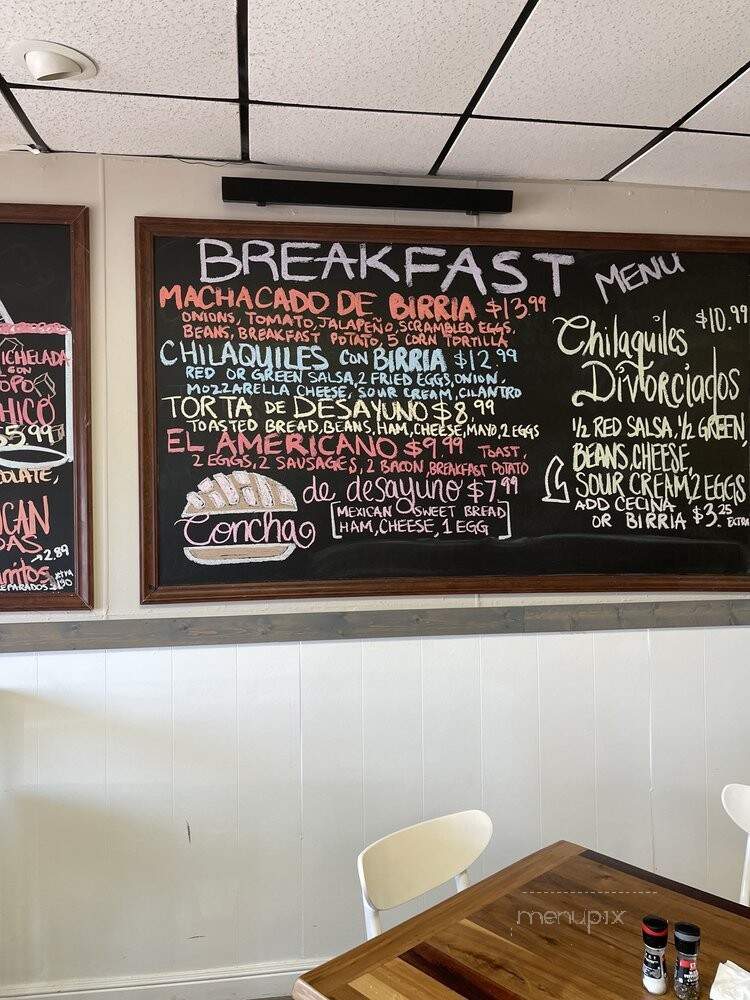 BREAKFAST MENU
MACHACADO DE BIRRIA $13.99
ONIONS, TOMATO, JALAPEÑO, SCRAMBLED EGGS,
BEANS, BREAKFAST POTATO, 5 CORN TORTILLA
CHILAQUILES CON BIRRIA $12.99
RED OR GREEN SALSA, 2 FRIED EGGS, ONION,
MOZZARELLA CHEESE, SOUR CREAM, CILANTRO
TORTA DE DESAYUNO $8.99
TOASTED BREAD, BEANS, HAM, CHEESE, MAYO, 2 EGGS
EL AMERICANO $9.99 TOAST,
2 EGGS, 2 SAUSAGES, 2 BACON, BREAKFAST POTATO
Concha de desayuno $7.99
[MEXICAN SWEET BREAD
HAM, CHEESE, 1 EGG]
$10.99
Chilaquiles
Divorciados
1/2 RED SALSA, 1/2 GREEN
BEANS, CHEESE,
SOUR CREAM, 2 EGGS
ADD CECINA
OR BIRRIA $3.25 EXTRA
MICHELADA
CON
$5.99
2.89
menupix